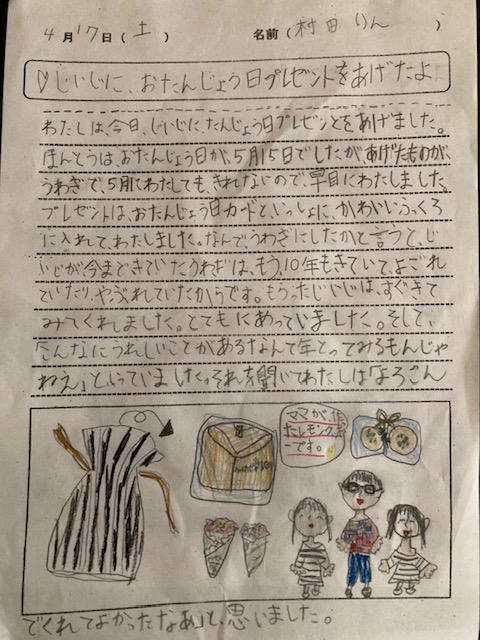 4月17日(土) 名前(村田りん)
♡じいじに、おたんじょう日プレゼントをあげたよ
わたしは、今日、じいじに、たんじょう日プレゼントをあげました。
ほんとうは、おたんじょう日が、5月15日でしたが、あげたものが、
うわぎで、5月にわたしても、きれないので、早目にわたしました。
プレゼントは、おたんじょう日カードと、いっしょに、かわいいふくろ
に入れて、わたしました。なんで、うわぎにしたかと言うと、じ
いじが今まできていたうわぎは、もう、10年もきていて、よごれ
ていたり、やぶれていたからです。もらったじいじは、すぐきて
みてくれました。とてもにあっていました。そして、
「こんなにうれしいことがあるなんて年とってみるもんじゃ
ねえ」といっていました。それを聞いてわたしは「よろこん
ママが作っ
たレモンクッキ
ーです。
でくれてよかったなあ」と、思いました。